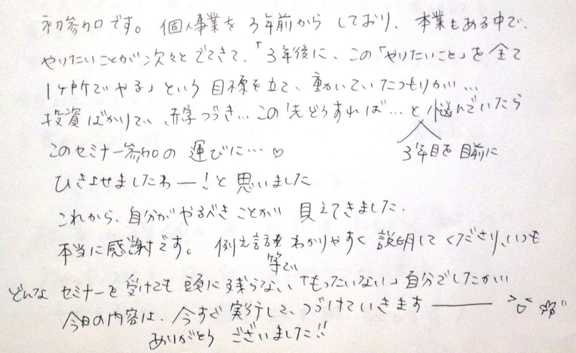 初参加です。個人事業を3年前からしており、本業もある中で、
やりたいことが次々とでてきて、「3年後に、この「やりたいこと」を全て
1ヶ所でやる」という目標を立て、動いていたつもりが…
投資ばかりで、赤字つづき…この先どうすれば…と悩んでいたら
3年目を目前に
このセミナー参加の運びに…♡
ひきよせましたわー！と思いました
これから、自分がやるべきことが見えてきました.
本当に感謝です。例え話等でわかりやすく説明してくださり、いつも
どんなセミナーを受けても頭に残らない「もったいない」自分でしたが
今日の内容は、今すぐ実行して、つづけていきます
ありがとうございました!!